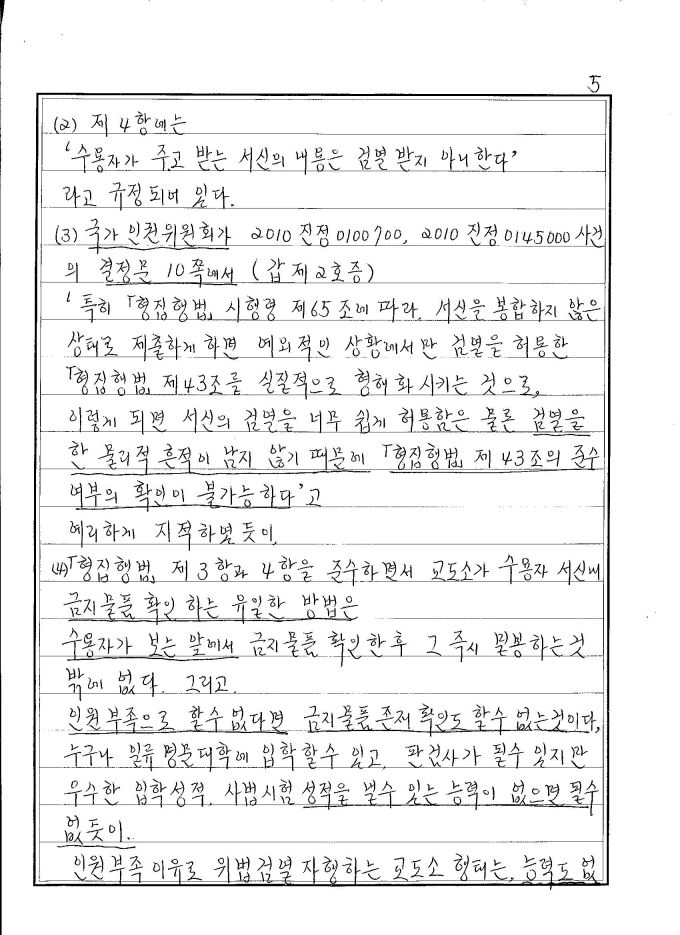 5
(2) 제 4항에는
'수용자가 주고 받는 서신의 내용은 검열 받지 아니한다'
라고 규정되어 있다.
(3) 국가 인권위원회가 2010 진정 0100700, 2010 진정 0145000 사건
의 결정문 10쪽에서 (갑 제2호증)
'특히 「형집행법」 시행령 제65조에 따라, 서신을 봉합하지 않은
상태로 제출하게 하면 예외적인 상황에서만 검열을 허용한
「형집행법」 제43조를 실질적으로 형해화시키는 것으로,
이렇게 되면 서신의 검열을 너무 쉽게 허용함은 물론 검열을
한 물리적 흔적이 남지 않기 때문에 「형집행법」 제 43조의 준수
여부의 확인이 불가능하다'고
예리하게 지적하였듯이,
(4)「형집행법」 제 3항과 4항을 준수하면서 교도소가 수용자 서신내
금지물품 확인 하는 유일한 방법은
수용자가 보는 앞에서 금지물품 확인한후 그 즉시 밀봉하는것
밖에 없다. 그리고,
인원부족으로 할수 없다면 금지물품존재 확인도 할수 없는것이다,
누구나 일류 명문대학에 입학할수 있고, 판검사가 될수 있지만
우수한 입학성적, 사법시험 성적을 낼수 있는 능력이 없으면 될수
없듯이.
인원부족 이유로 위법검열 자행하는 교도소 형태는, 능력도 없